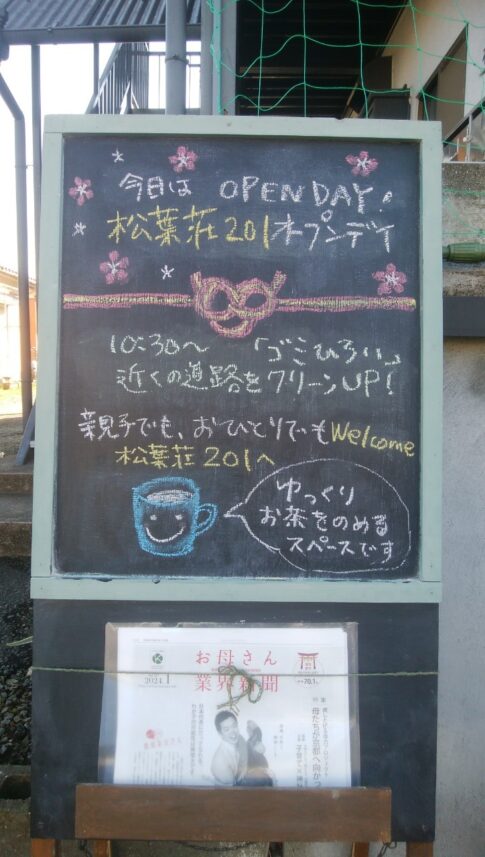 今日は OPEN DAY!
松葉荘201オープンデイ
10:30〜 「ゴミひろい」
近くの道路をクリーンUP!
親子でも、おひとりでもWelcome
松葉荘201へ
ゆっくり
お茶をのめる
スペースです
お母さん
業界新聞
2024.1
母たちが京都へ向かっ